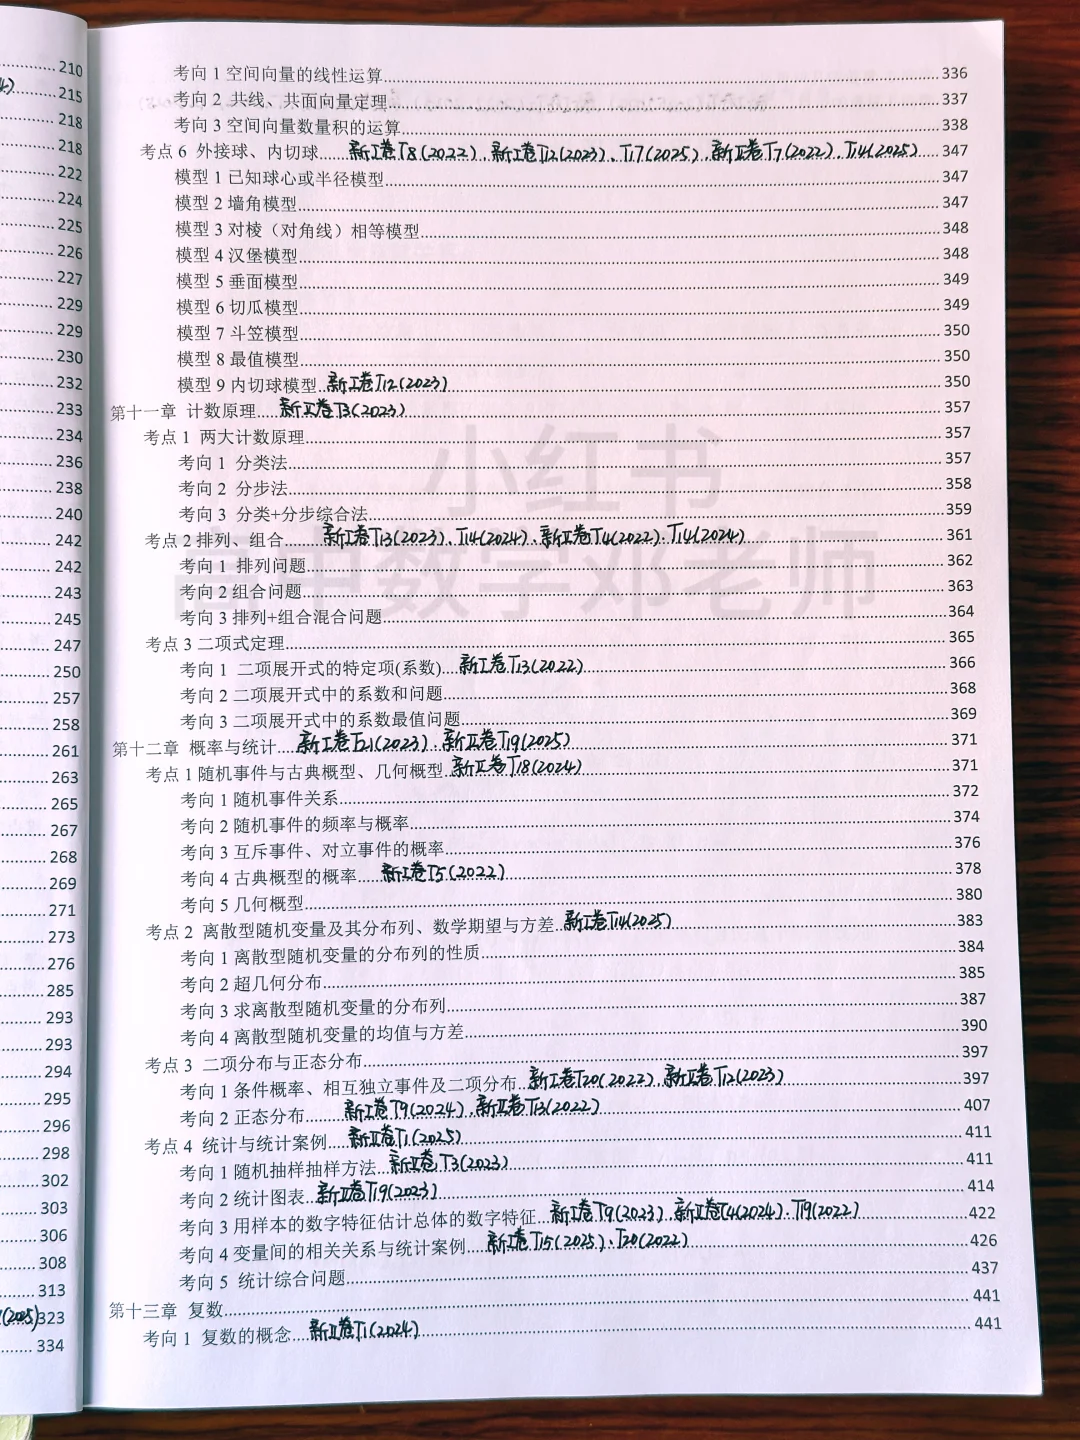 210
215
218
218
222
224
225
226
227
229
229
230
232
233
234
236
238
240
242
242
243
245
247
250
257
258
261
263
265
267
268
269
271
273
276
285
293
293
294
295
296
298
302
303
306
308
313
(2025)323
334
考向 1 空间向量的线性运算 336
考向 2 共线、共面向量定理 337
考向 3 空间向量数量积的运算 338
考点 6 外接球、内切球 新I卷T8(2022)、新I卷T12(2023)、T17(2025)、新II卷T7(2022)、T14(2025) 347
模型 1 已知球心或半径模型 347
模型 2 墙角模型 347
模型 3 对棱（对角线）相等模型 348
模型 4 汉堡模型 348
模型 5 垂面模型 349
模型 6 切瓜模型 349
模型 7 斗笠模型 350
模型 8 最值模型 350
模型 9 内切球模型 新I卷T12(2023) 350
第十一章 计数原理 新II卷T3(2023) 357
考点 1 两大计数原理 357
考向 1 分类法 357
考向 2 分步法 358
考向 3 分类+分步综合法 359
考点 2 排列、组合 新I卷T13(2023)、T14(2024)、新II卷T4(2022)、T14(2024) 361
考向 1 排列问题 362
考向 2 组合问题 363
考向 3 排列+组合混合问题 364
考点 3 二项式定理 365
考向 1 二项展开式的特定项(系数) 新I卷T13(2022) 366
考向 2 二项展开式中的系数和问题 368
考向 3 二项展开式中的系数最值问题 369
第十二章 概率与统计 新I卷T21(2023)、新II卷T19(2025) 371
考点 1 随机事件与古典概型、几何概型 新II卷T18(2024) 371
考向 1 随机事件关系 372
考向 2 随机事件的频率与概率 374
考向 3 互斥事件、对立事件的概率 376
考向 4 古典概型的概率 新I卷T5(2022) 378
考向 5 几何概型 380
考点 2 离散型随机变量及其分布列、数学期望与方差 新I卷T14(2025) 383
考向 1 离散型随机变量的分布列的性质 384
考向 2 超几何分布 385
考向 3 求离散型随机变量的分布列 387
考向 4 离散型随机变量的均值与方差 390
考点 3 二项分布与正态分布 397
考向 1 条件概率、相互独立事件及二项分布 新I卷T20(2022)、新II卷T12(2023) 397
考向 2 正态分布 新I卷T9(2024)、新II卷T13(2022) 407
考点 4 统计与统计案例 新II卷T1(2025) 411
考向 1 随机抽样抽样方法 新II卷T3(2023) 411
考向 2 统计图表 新II卷T19(2023) 414
考向 3 用样本的数字特征估计总体的数字特征 新I卷T9(2023)、新II卷T4(2024)、T19(2022) 422
考向 4 变量间的相关关系与统计案例 新I卷T15(2025)、T20(2022) 426
考向 5 统计综合问题 437
第十三章 复数 441
考向 1 复数的概念 新II卷T1(2024) 441
小红书
高中数学邓老师